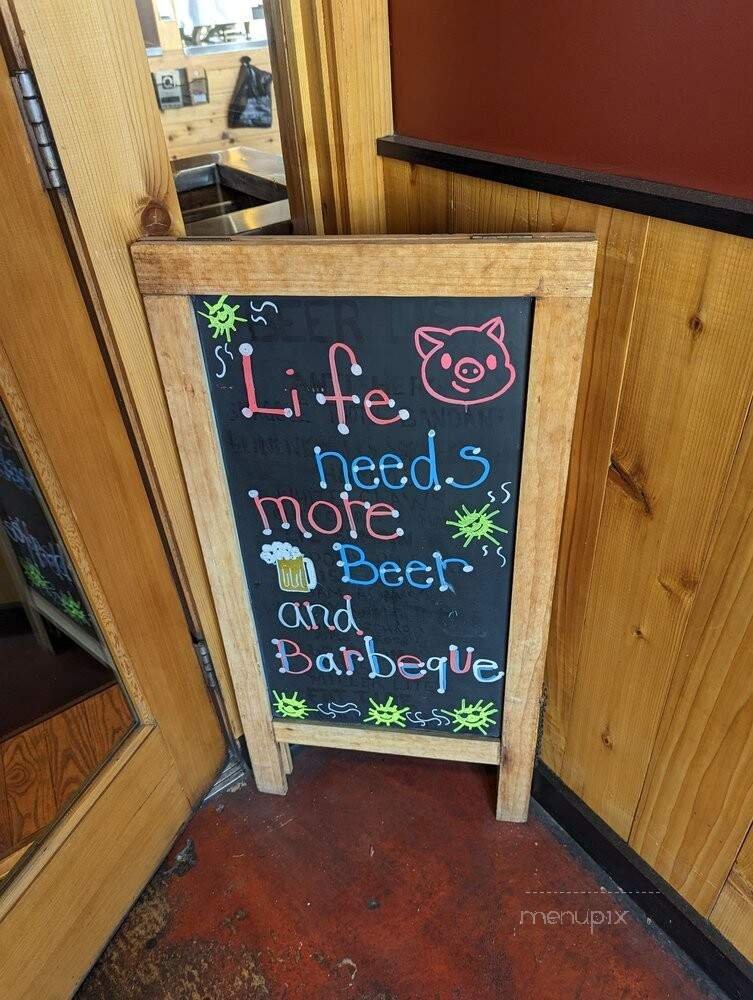 Life
needs
more
Beer
and
Barbeque
menupix